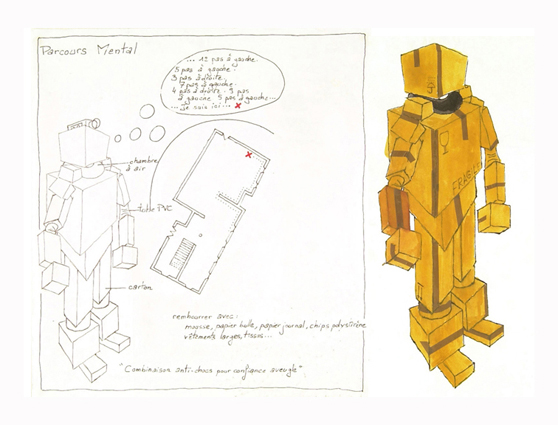 Parcours Mental
... 12 pas à gauche.
5 pas à gauche.
3 pas à droite.
7 pas à gauche.
4 pas à droite. 9 pas
à gauche 5 pas à gauche...
... je suis ici... x
chambre
à air
tube PVC
carton
rembourrer avec:
mousse, papier bulle, papier journal, chips polystirène
vêtements larges, tissus...
"Combinaison anti-chocs pour confiance aveugle"
FRAGILE